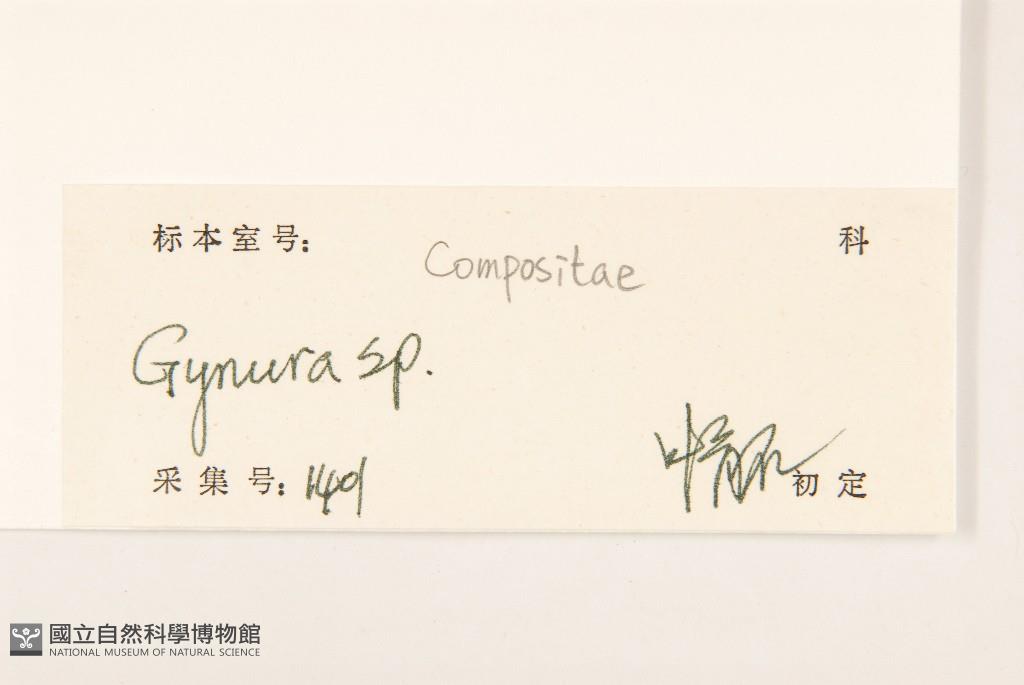 标本室号: Compositae 科
Gynura sp.
采集号: 1401 初定
國立自然科學博物館
NATIONAL MUSEUM OF NATURAL SCIENCE